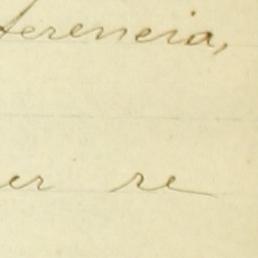 ferencia,
er re